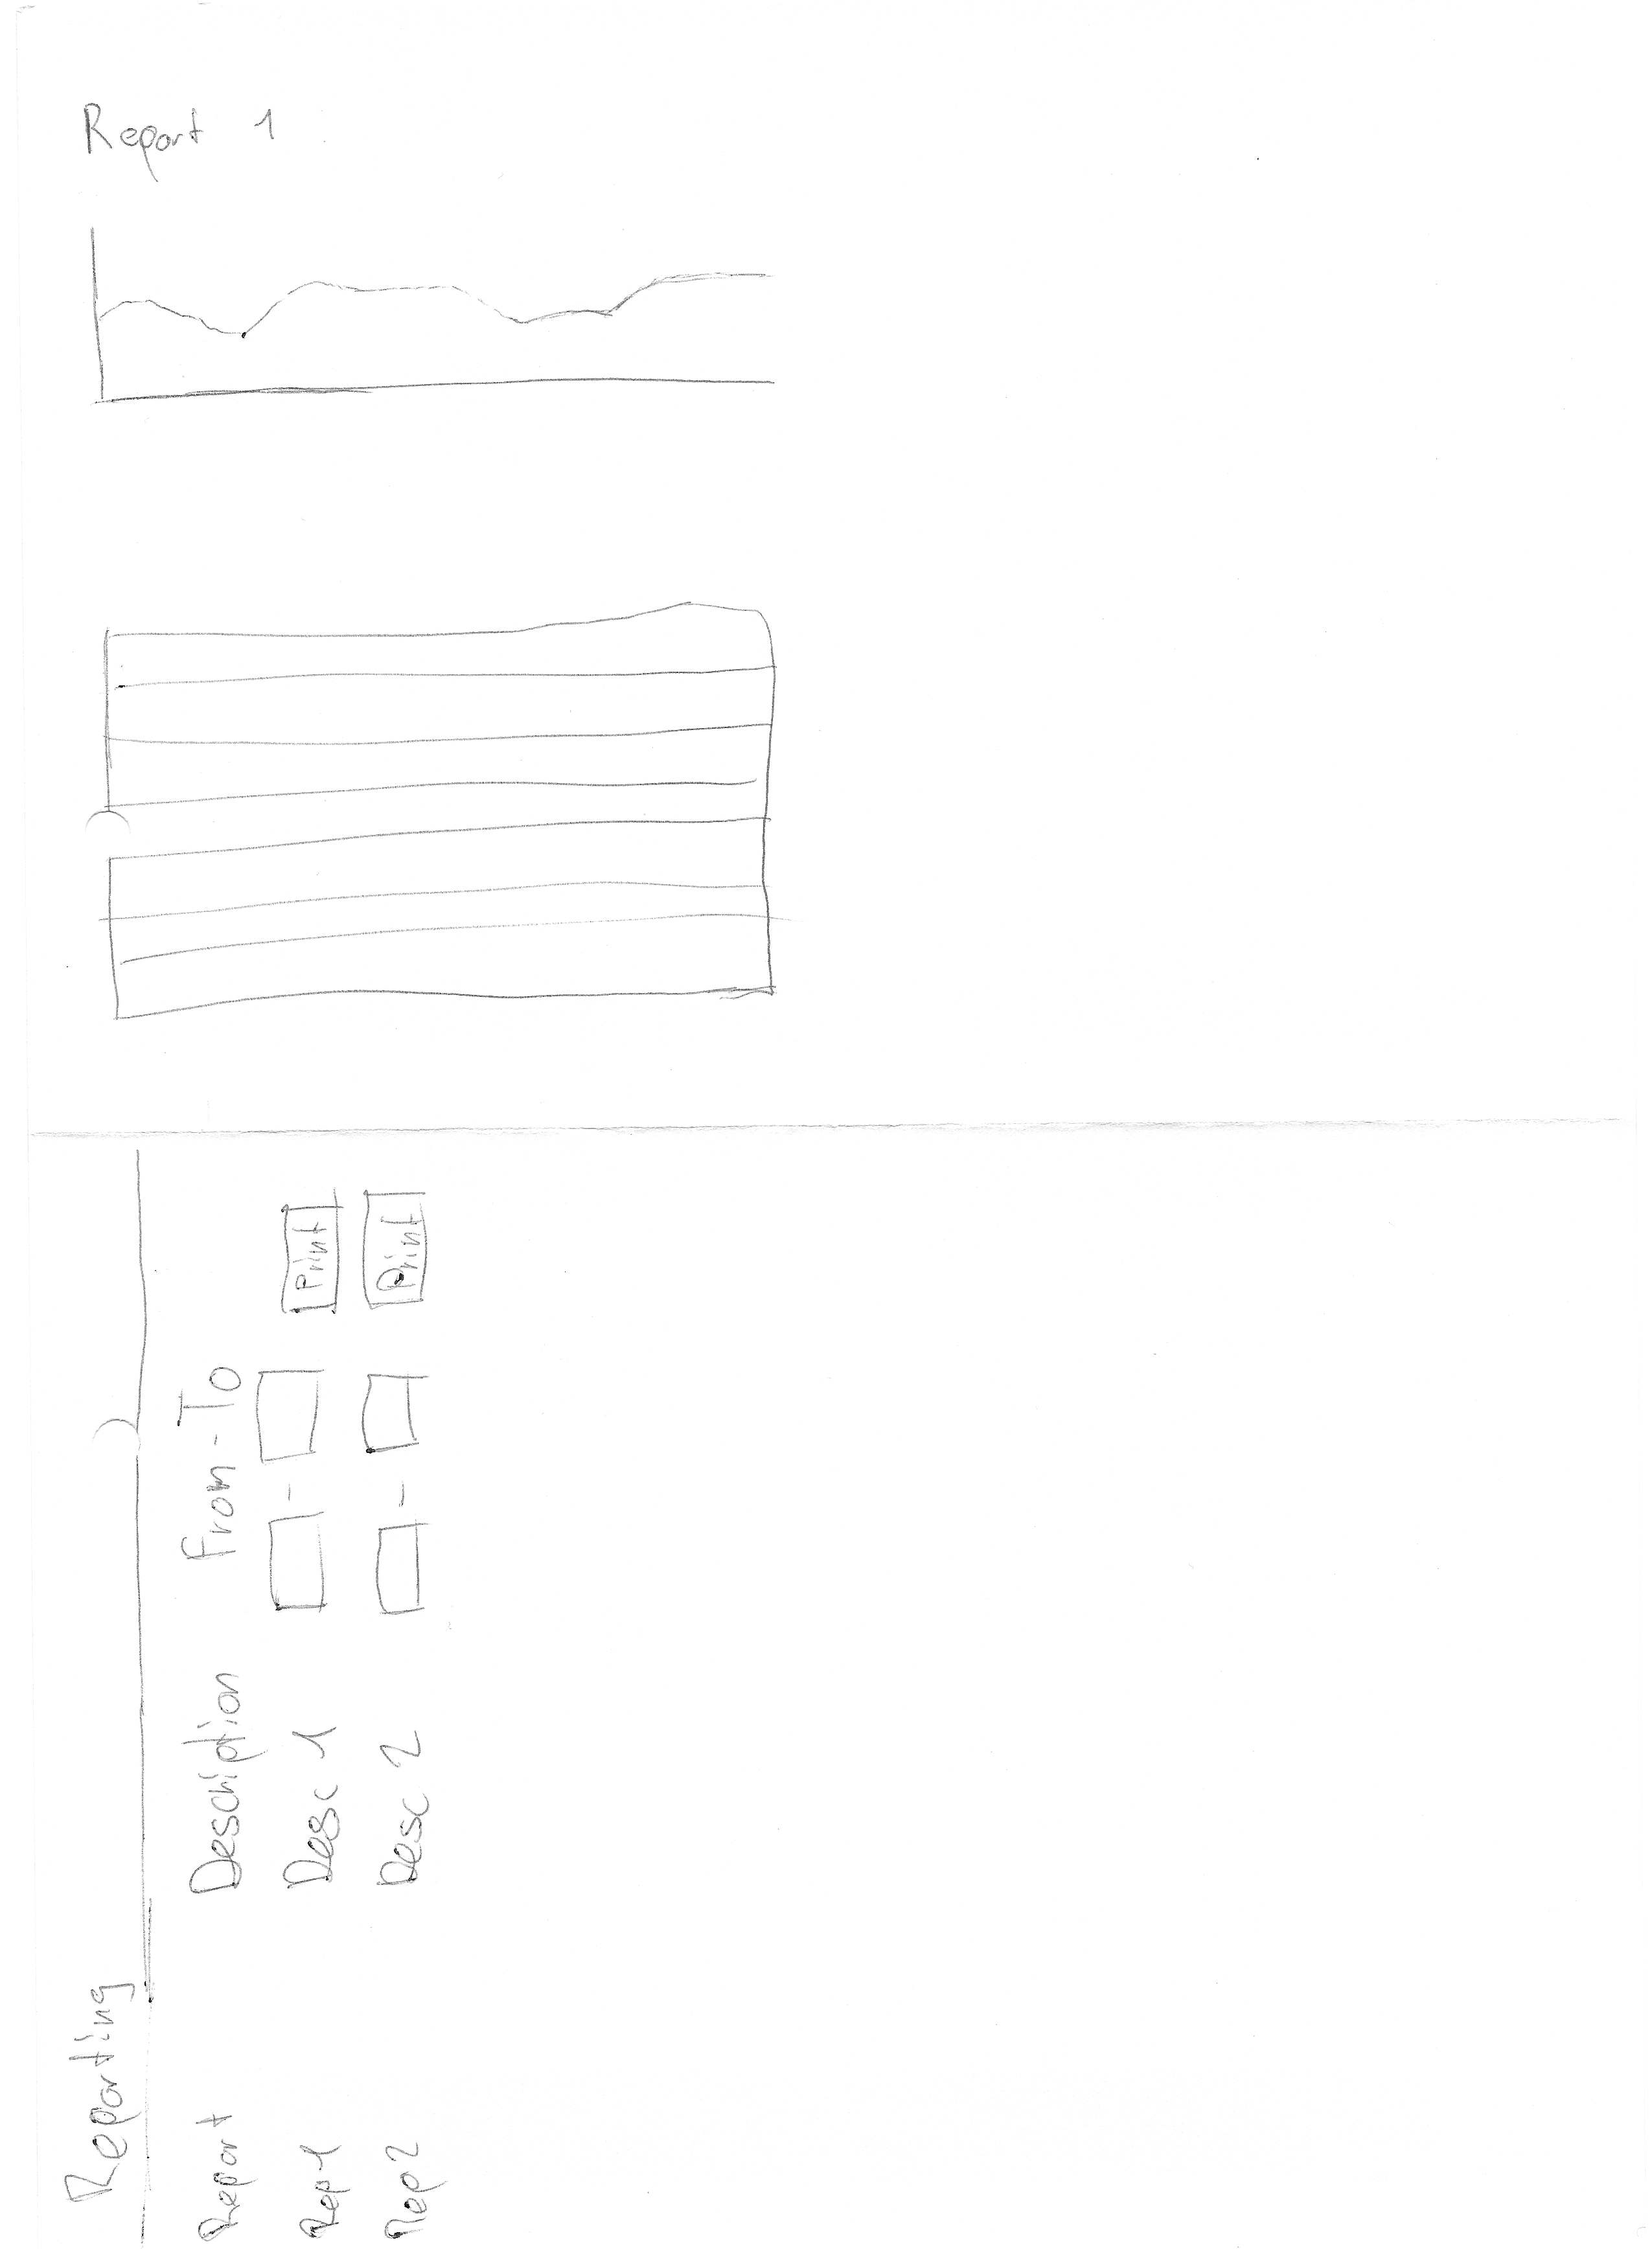 Report 1
Reporting
Report Description From - To
Rep1 Desc 1 - Print
Rep2 Desc 2 - Print